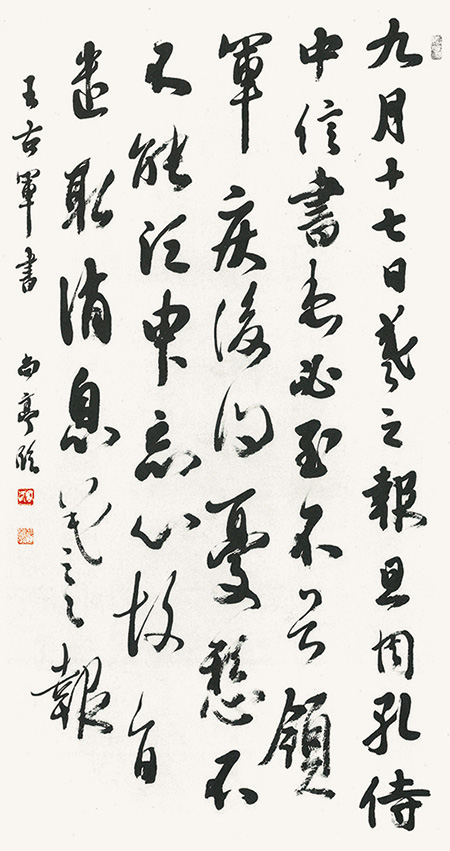 九月十七日羲之報且因孔侍
中信書想必至不知領
軍疾後問憂懸不
不能須臾忘心故旨
遣取消息羲之報
王右軍書 尚亭臨